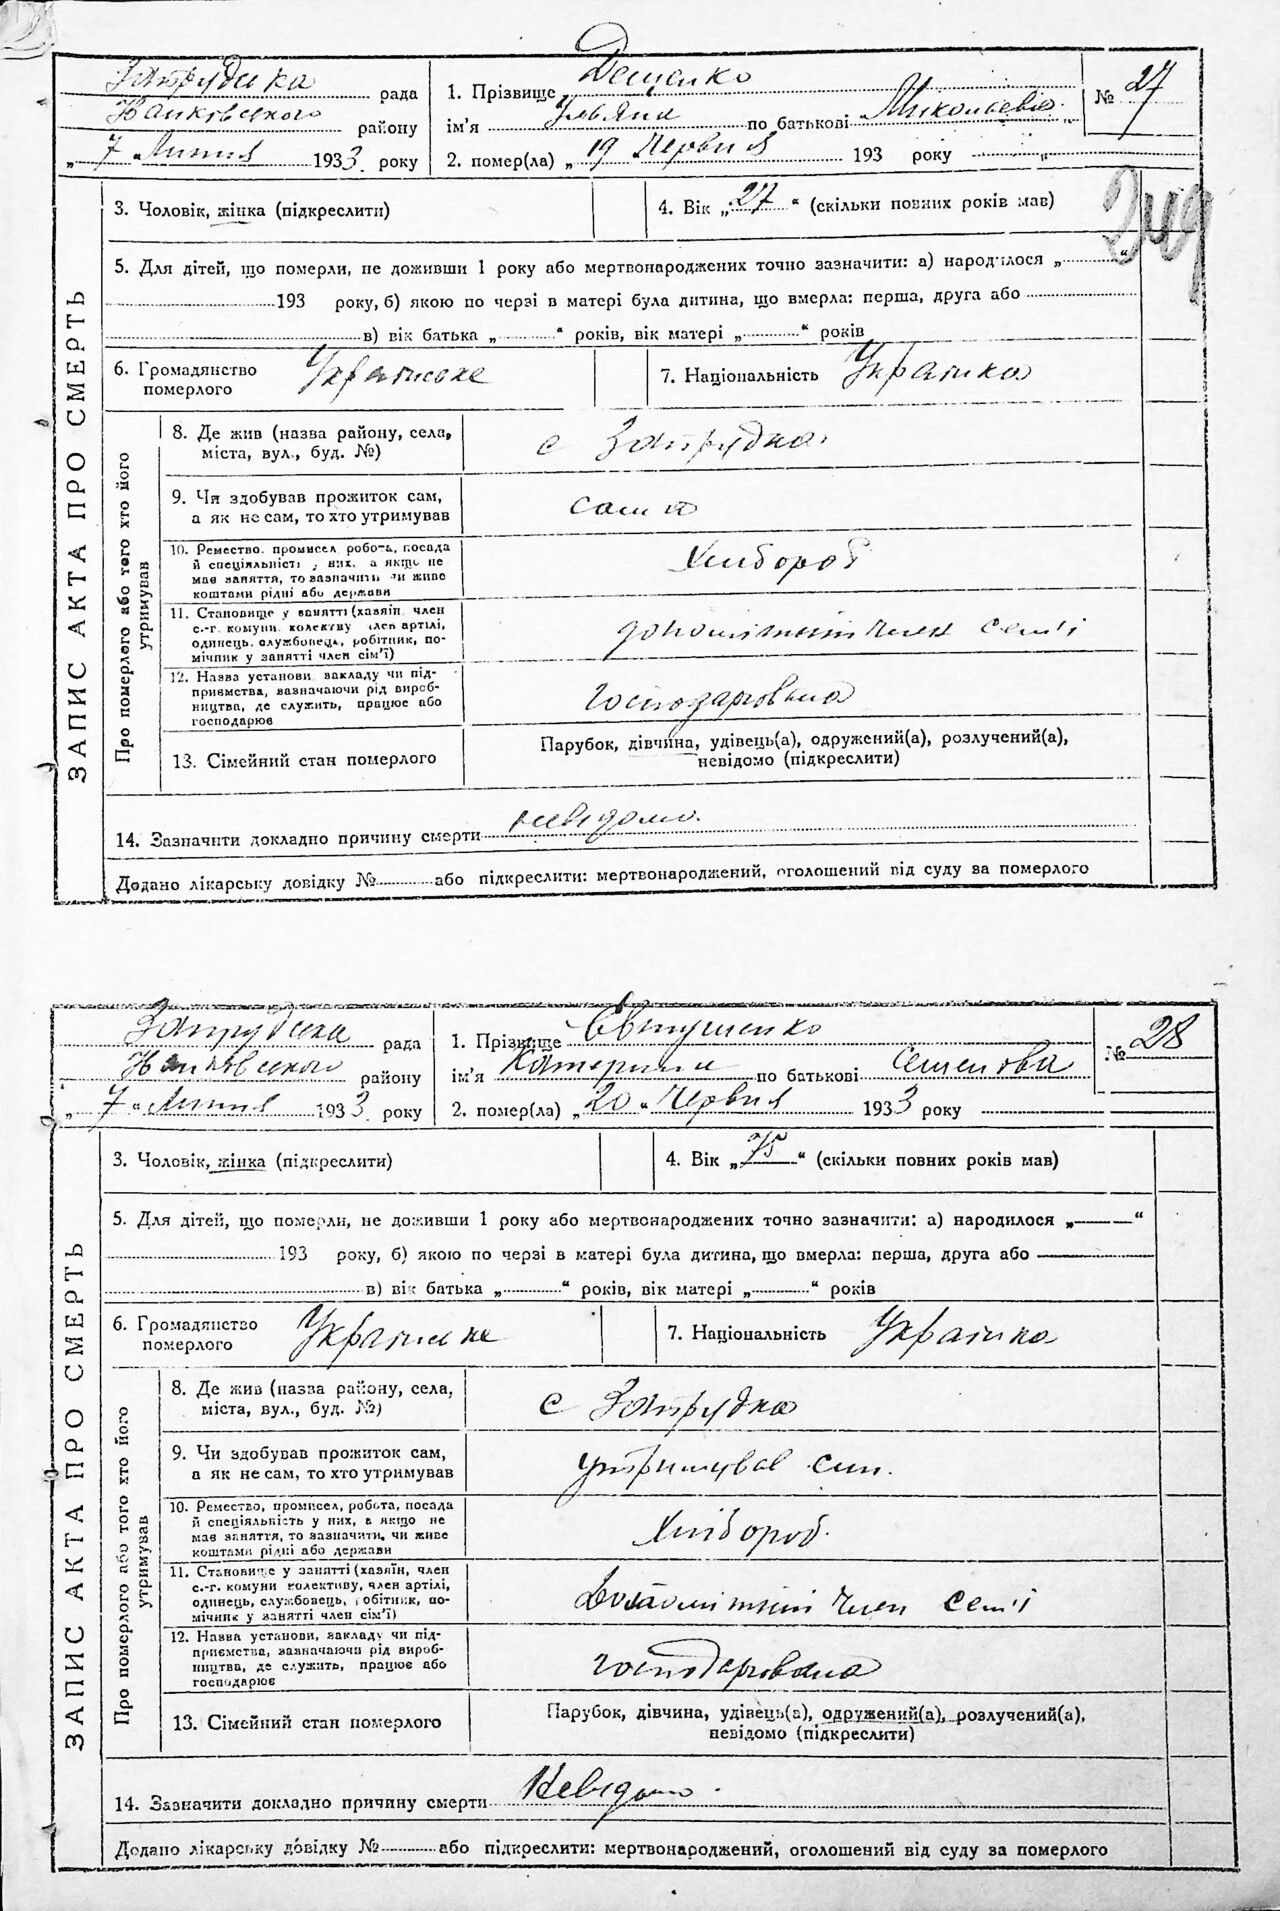 Затрудська рада
району
„ 7 „ Липня 1933 року
1. Прізвище Деценко
ім’я Ульяна по батькові
2. помер(ла) „ 19 Червня 193 року
№ 27
ЗАПИС АКТА ПРО СМЕРТЬ
3. Чоловік, жінка (підкреслити)
4. Вік „ 27 “ (скільки повних років мав)
5. Для дітей, що померли, не доживши 1 року або мертвонароджених точно зазначити: а) народилося „ “
193 року, б) якою по черзі в матері була дитина, що вмерла: перша, друга або
в) вік батька „ “ років, вік матері „ “ років
6. Громадянство
померлого
Українське
7. Національність Українка
Про померлого або того хто його
утримував
8. Де жив (назва району, села,
міста, вул., буд. №)
с Затрудка
9. Чи здобував прожиток сам,
а як не сам, то хто утримував
сама
10. Ремество, промисел, робота, посада
й спеціяльність у них, а якщо не
має заняття, то зазначити чи живе
коштами рідні або держави
Хлібороб
11. Становище у занятті (хазяїн, член
с.-г. комуни, колективу, член артілі,
одинець, службовець, робітник, по-
мічник у занятті член сім’ї)
допоміжний член сем’ї
12. Назва установи, закладу чи під-
приємства, зазначаючи рід вироб-
ництва, де служить, працює або
господарює
господарювала
13. Сімейний стан померлого
Парубок, дівчина, удівець(а), одружений(а), розлучений(а),
невідомо (підкреслити)
14. Зазначити докладно причину смерти невідомо.
Додано лікарську довідку № або підкреслити: мертвонароджений, оголошений від суду за померлого
Затрудська рада
району
„ 7 “ Липня 1933 року
1. Прізвище Євтушенко
ім’я Катерина по батькові Семенова
2. помер(ла) „ 20 “ Червня 1933 року
№ 28
ЗАПИС АКТА ПРО СМЕРТЬ
3. Чоловік, жінка (підкреслити)
4. Вік „ 75 “ (скільки повних років мав)
5. Для дітей, що померли, не доживши 1 року або мертвонароджених точно зазначити: а) народилося „ “
193 року, б) якою по черзі в матері була дитина, що вмерла: перша, друга або
в) вік батька „ “ років, вік матері „ “ років
6. Громадянство
померлого
Українське
7. Національність Українка
Про померлого або того хто його
утримував
8. Де жив (назва району, села,
міста, вул., буд. №)
с Затрудка
9. Чи здобував прожиток сам,
а як не сам, то хто утримував
утримував син.
10. Ремество, промисел, робота, посада
й спеціяльність у них, а якщо не
має заняття, то зазначити, чи живе
коштами рідні або держави
Хлібороб.
11. Становище у занятті (хазяїн, член
с.-г. комуни колективу, член артілі,
одинець, службовець, робітник, по-
мічник у занятті член сім’ї)
член сем’ї
12. Назва установи, закладу чи під-
приємства, зазначаючи рід вироб-
ництва, де служить, працює або
господарює
господарювала
13. Сімейний стан померлого
Парубок, дівчина, удівець(а), одружений(а), розлучений(а),
невідомо (підкреслити)
14. Зазначити докладно причину смерти Невідомо.
Додано лікарську довідку № або підкреслити: мертвонароджений, оголошений від суду за померлого